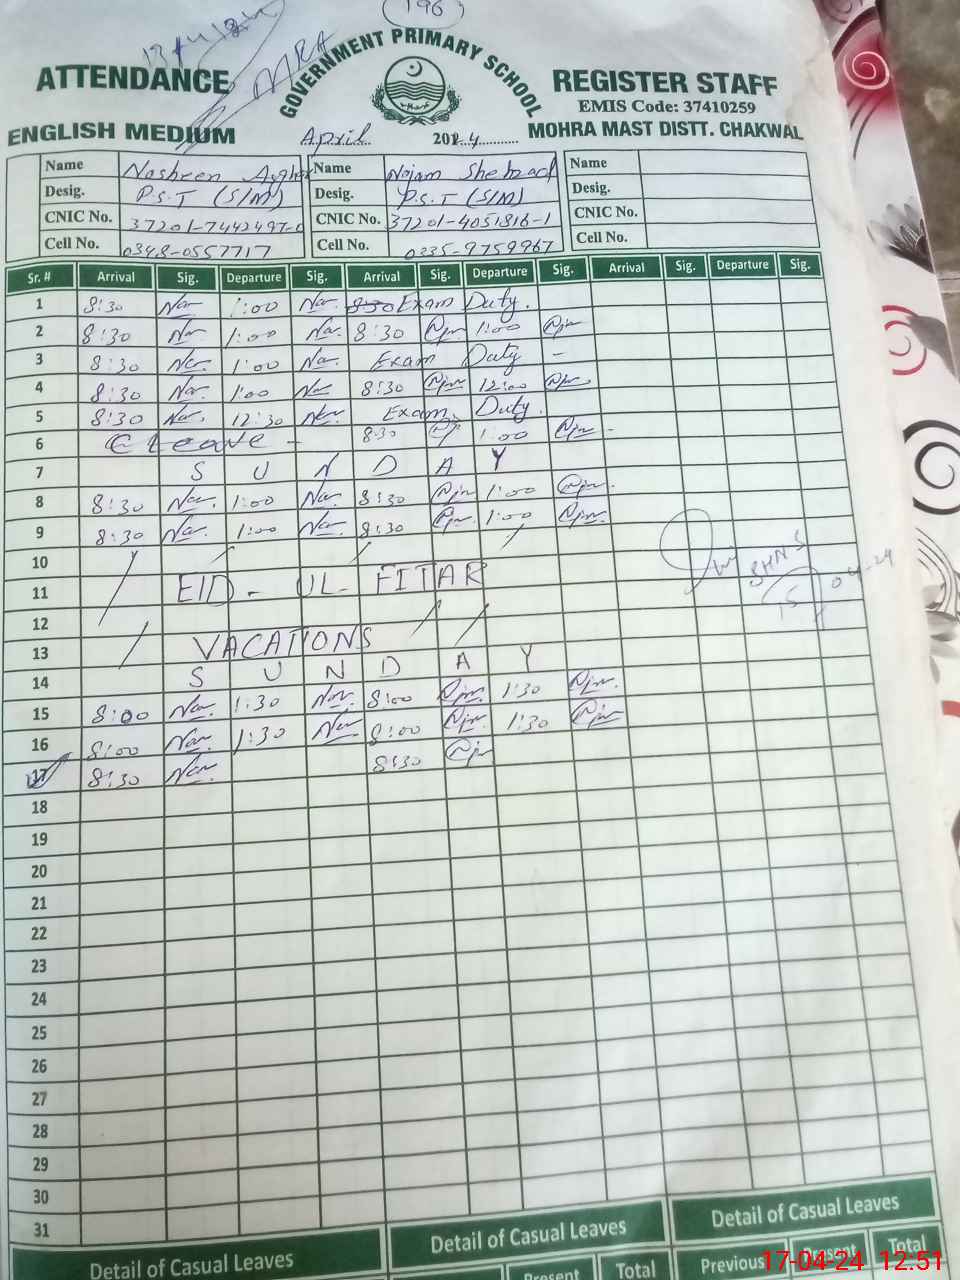 196
GOVERNMENT PRIMARY SCHOOL
ATTENDANCE REGISTER STAFF
MRA
EMIS Code: 37410259
ENGLISH MEDIUM April 2024 MOHRA MAST DISTT. CHAKWAL
Name Nosheen Name Najam Shehzad Name
Desig. P.S.T (S/M) Desig. P.S.T (S/M) Desig.
CNIC No. CNIC No. 37201-4051816-1 CNIC No.
Cell No. 0348-0557717 Cell No. 0335-9759967 Cell No.
Sr. # Arrival Sig. Departure Sig. Arrival Sig. Departure Sig. Arrival Sig. Departure Sig.
1 8:30 1:00 8:30 Exam Duty.
2 8:30 1:00 8:30 1:00
3 8:30 1:00 Exam Duty -
4 8:30 1:00 8:30 12:00
5 8:30 12:30 Exam Duty.
6 C Leave - 8:30 1:00 -
7 S U N D A Y
8 8:30 1:00 8:30 1:00
9 8:30 1:00 8:30 1:00
10
11 EID - UL - FITAR
12
13 VACATIONS
14 S U N D A Y
15 8:00 1:30 8:00 1:30
16 8:00 1:30 8:00 1:30
17 8:30 8:30
18
19
20
21
22
23
24
25
26
27
28
29
30
31
Detail of Casual Leaves Detail of Casual Leaves Detail of Casual Leaves
Present Total Previous Present Total
17-04-24 12:51